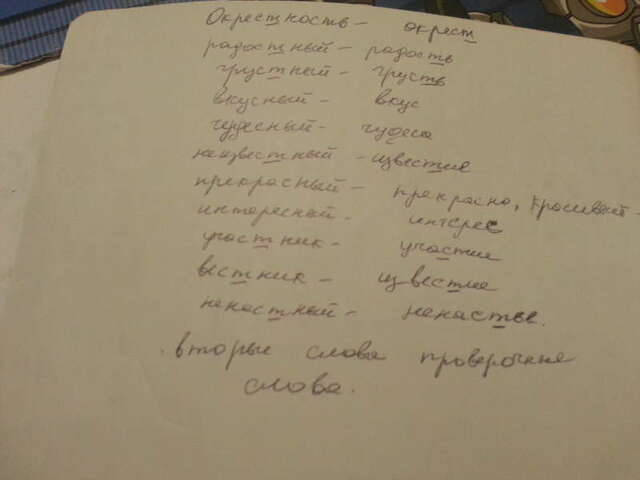 Окрестность - окрест
радостный - радость
грустный - грусть
вкусный - вкус
чудесный - чудеса
неизвестный - известия
прекрасный - прекрасно, красивый -
интересный - интерес
участник - участие
вестник - известие
ненастный - ненастье.
вторые слова проверочные
слова.